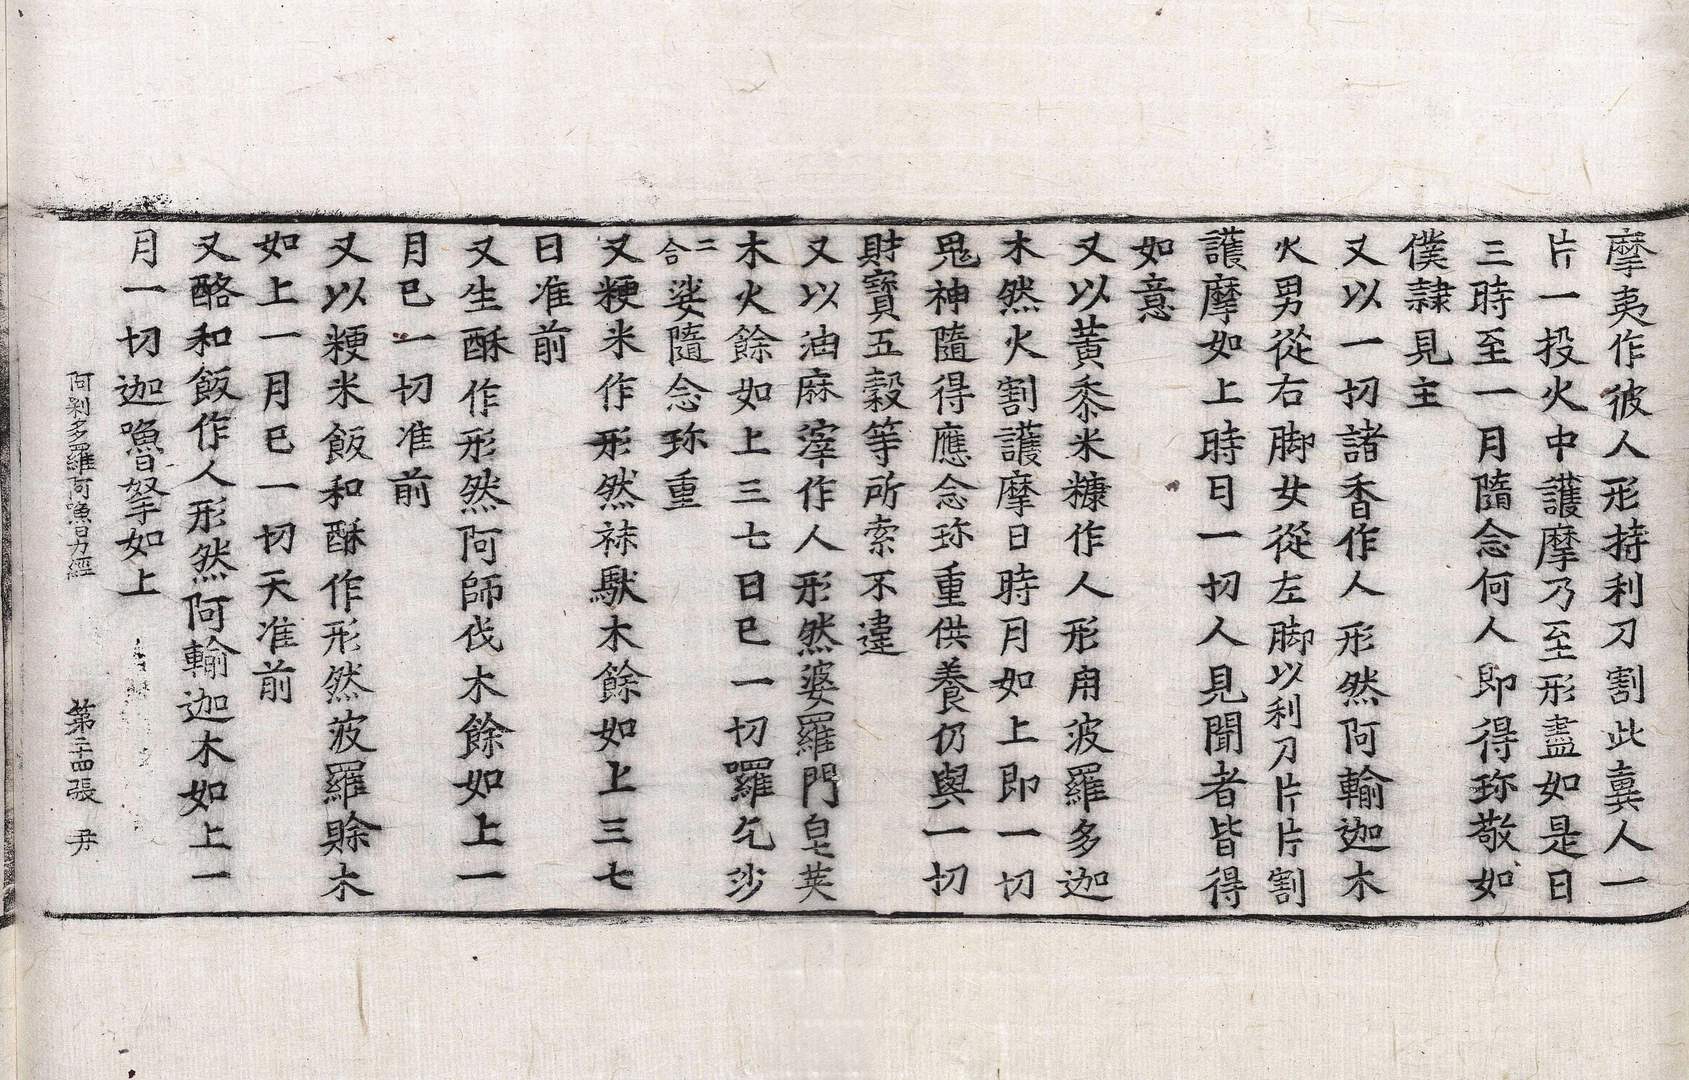 摩夷作彼人形持利刀割此糞人一
片一投火中護摩乃至形盡如是日
三時至一月隨念何人即得珎敬如
僕隷見主
又以一切諸香作人形然阿輸迦木
火男從右脚女從左脚以利刀片片割
護摩如上時日一切人見聞者皆得
如意
又以黃黍米糠作人形用波羅多迦
木然火割護摩日時月如上即一切
鬼神隨得應念珎重供養仍與一切
財寶五穀等所索不違
又以油麻滓作人形然婆羅門皂莢
木火餘如上三七日已一切囉乞沙
二合娑隨念珎重
又粳米作形然袜䭾木餘如上三七
日准前
又生酥作形然阿師伐木餘如上一
月已一切准前
又以粳米飯和酥作形然波羅賒木
如上一月已一切天准前
又酪和飯作人形然阿輸迦木如上一
月一切迦嚕拏如上
阿剎多羅阿嚕力經 第二十四張 尹